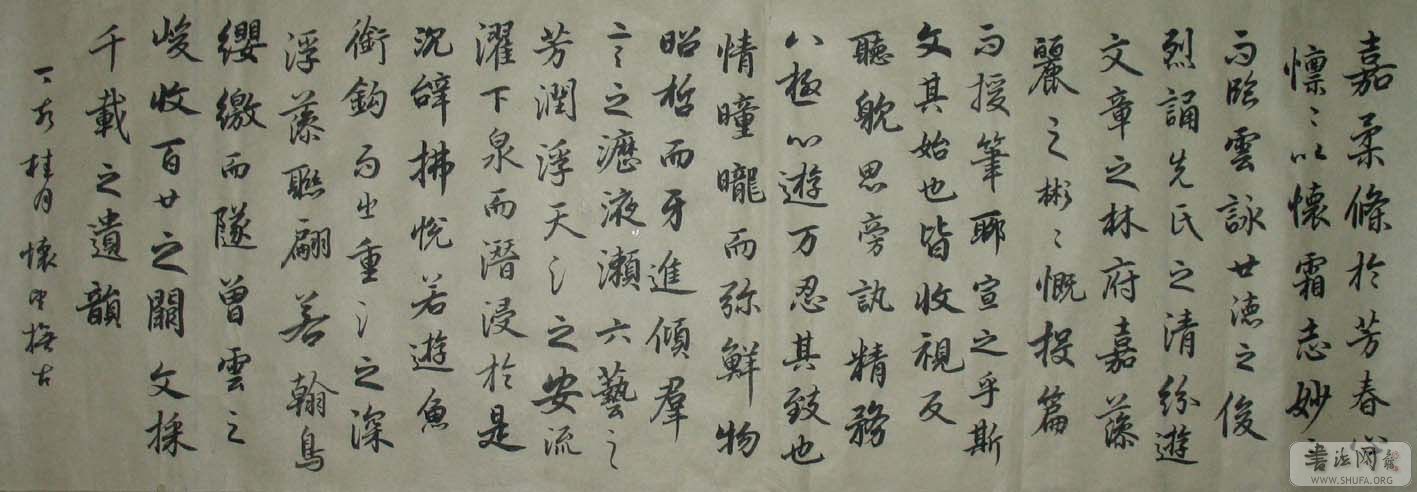 嘉柔條於芳春心
懍〻以懷霜志妙〻
而臨雲詠世德之俊
烈誦先民之清紛遊
文章之林府嘉藻
麗之彬〻慨投篇
而授筆聊宣之乎斯
文其始也皆收視反
聽躭思旁訊精務
八極心遊万忍其致也
情曈曨而弥鮮物
昭哲而牙進傾羣
言之瀝液瀨六藝之
芳潤浮天之安流
濯下泉而潛浸於是
沉辭拂悅若遊魚
銜鈎而出重之深
浮藻聯翩若翰鳥
纓繳而隧曾雲之
峻收百世之闕文採
千載之遺韻
丁亥桂月懷撫古
書法网
WWW.SHUFA.ORG